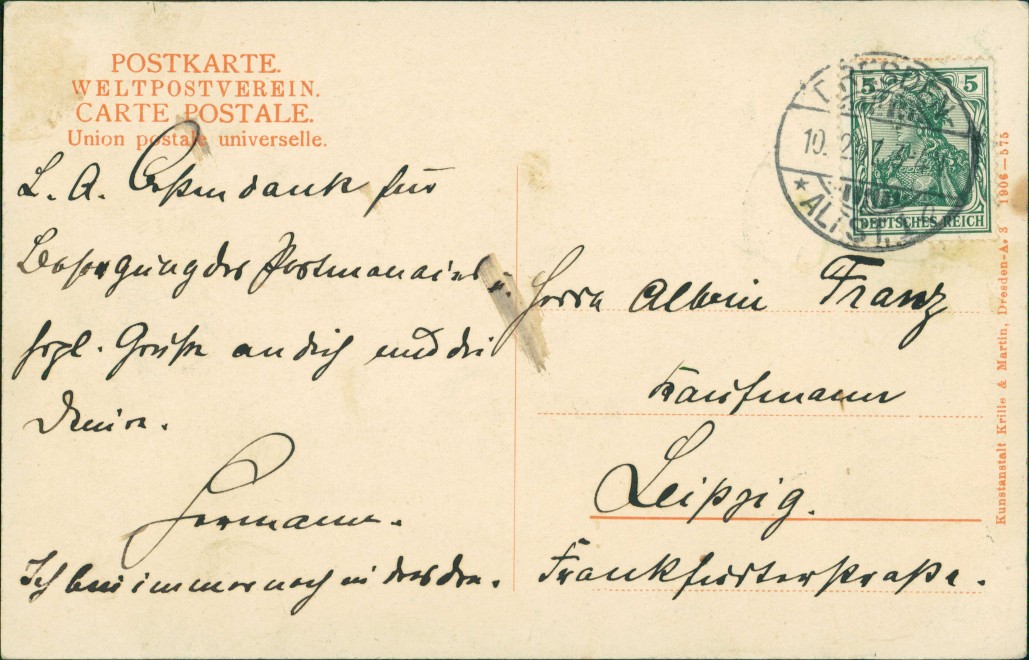 POSTKARTE.
WELTPOSTVEREIN.
CARTE POSTALE.
Union postale universelle.
L. A. Besten dank für
Besorgung des Postmanaies u.
hrzl. Grüße an dich und die
Deinen.
Hermann.
Ich bin immer noch in Dresden.
DRESDEN
10. 2.
* ALTST. 1
5 5
DEUTSCHES REICH
Herrn Albin Franz
Kaufmann
Leipzig.
Frankfurterstraße.
Kunstanstalt Krille & Martin, Dresden-A. 3 1906—575